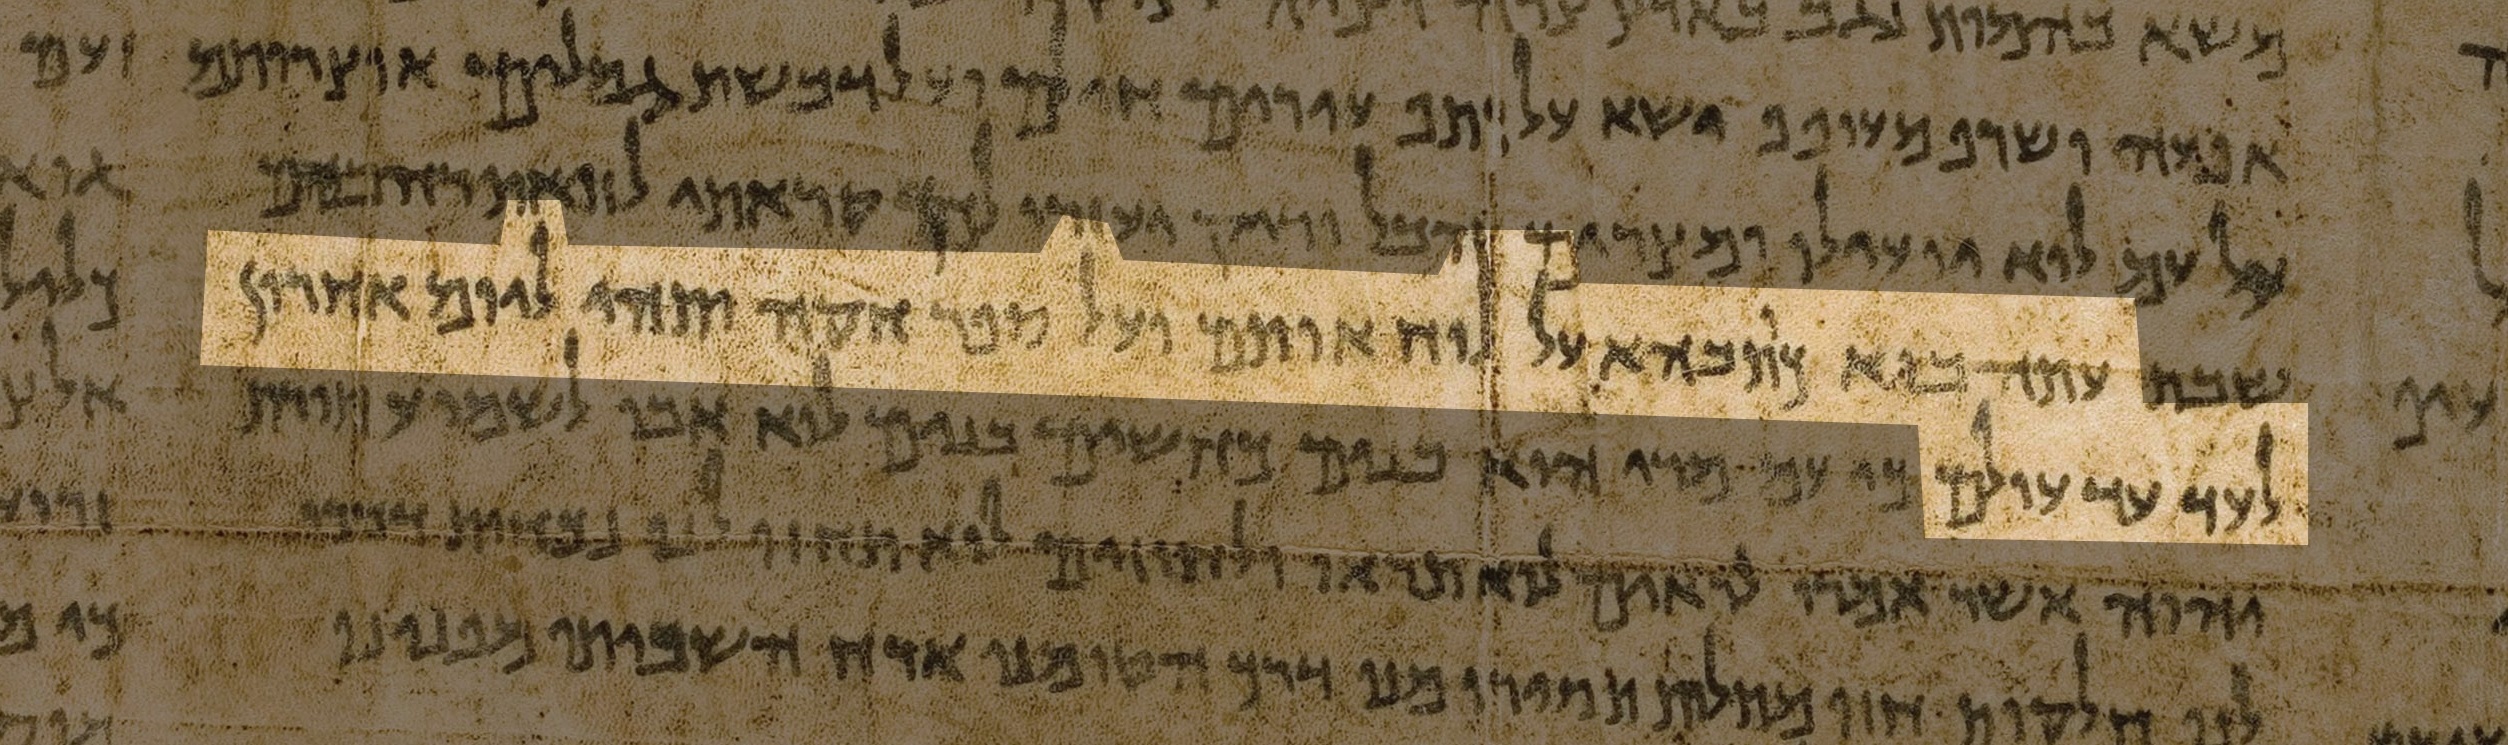 משא בהמות נגב בארץ
אפעה ושרף מעופף ישא על כתף ועל דבשת גמלים אוצרותם
על עם לוא יועילו ומצרים הבל וריק יעזורו לכן קראתי לזואת רהב המה
שבת עתה בוא כותבהא על לוח אותם ועל ספר חקה ותהי ליום אחרון
לעד עד עולם כי עם מרי הוא בנים כחשים בנים לוא אבו לשמוע תורת
יהוה אשר אמרו לראים לוא תראו ולחוזים לוא תחזו לנו
לנו חלקות חזו מתלות תסירו מני דרך הטו מני ארח השביתו מפנינו